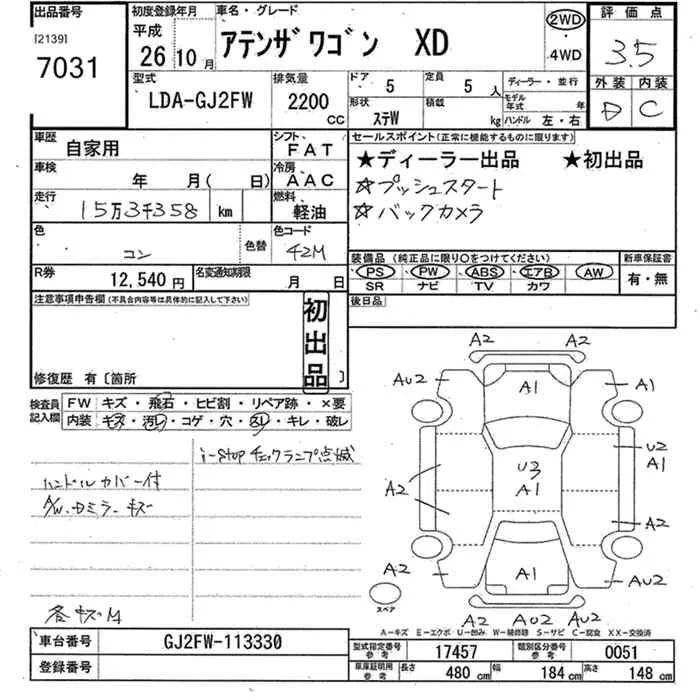 出品番号
[2139]
7031
初度登録年月
平成
26年10月
車名・グレード
アテンザワゴン XD
2WD
・
4WD
評価点
3.5
外装 内装
D C
型式
LDA-GJ2FW
排気量
2200 CC
ドア 5
定員 5 人
形状 ステW
積載 kg
ディーラー・並行
モデル年式 年
ハンドル 左・右
車歴 自家用
シフト FAT
車検 年 月( 日)
冷房 AAC
走行 15万3千358 km
燃料 軽油
色 コン
色替
色コード 42M
R券 12,540円
名変通知期限 月 日
セールスポイント(正常に機能するものに限ります)
★ディーラー出品 ★初出品
☆プッシュスタート
☆バックカメラ
装備品 (純正品に限り○をつけてください)
PS PW ABS エアB AW
SR ナビ TV カワ
新車保証書
有・無
後日品
注意事項申告欄(不具合内容等は具体的に記入して下さい)
初出品
修復歴 有〔箇所 〕
検査員記入欄
FW キズ・飛石・ヒビ割・リペア跡・×要
内装 キズ・汚レ・コゲ・穴・スレ・キレ・破レ
i-stop チェックランプ点滅
ハンドルカバー付
A/W.ドミラーキズ
各キズM
A2 A2
AU2 A1 A1
U2
A1
U3
A1
A2
A2
A2 A1 AU2
スペア
A2 AU2 AU2
A-キズ E-エクボ U-凹み W-補修跡 S-サビ C-腐食 XX-交換済
車台番号 GJ2FW-113330
登録番号
型式指定番号 参考 17457
類別区分番号 参考 0051
車庫証明用 参考 長さ 480 cm 幅 184 cm 高さ 148 cm